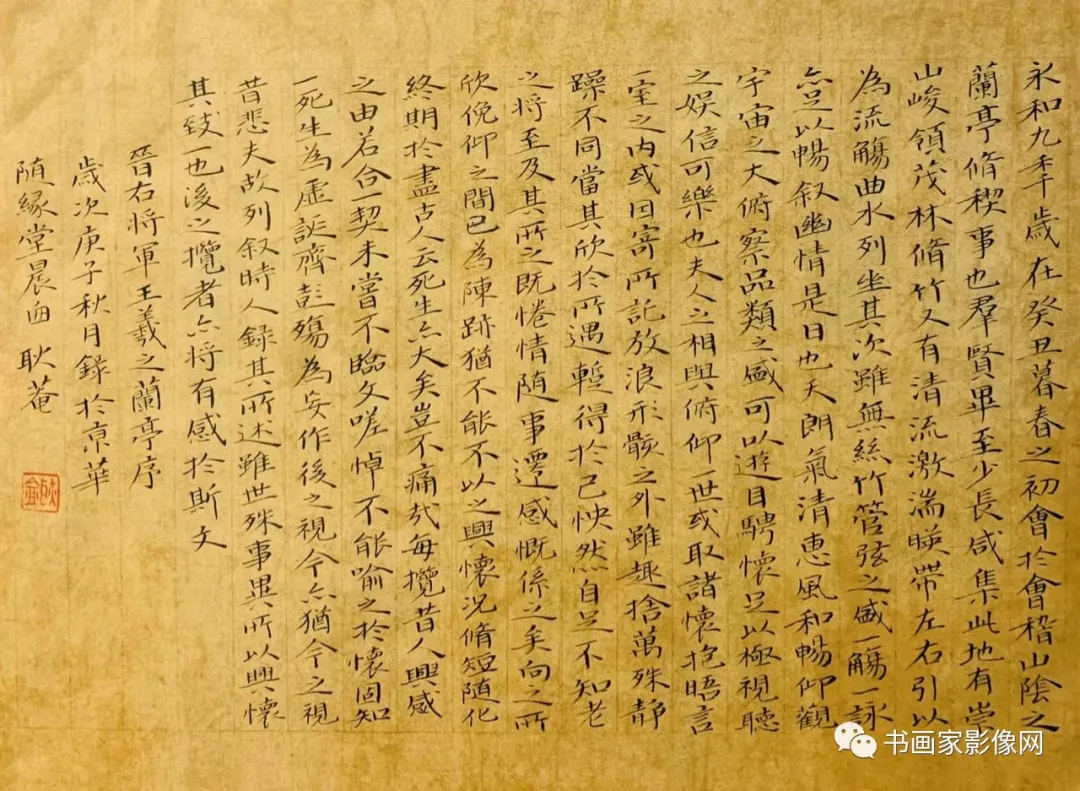 永和九年歲在癸丑暮春之初會於會稽山陰之
蘭亭脩稧事也羣賢畢至少長咸集此地有崇
山峻領茂林脩竹又有清流激湍暎帶左右引以
為流觴曲水列坐其次雖無絲竹管弦之盛一觴一詠
亦足以暢叙幽情是日也天朗氣清惠風和暢仰觀
宇宙之大俯察品類之盛可以遊目騁懷足以極視聽
之娛信可樂也夫人之相與俯仰一世或取諸懷抱晤言
一室之内或因寄所託放浪形骸之外雖趣捨萬殊静
躁不同當其欣於所遇暫得於己怏然自足不知老
之将至及其所之既惓情随事遷感慨係之矣向之所
欣俛仰之間已為陳跡猶不能不以之興懷況脩短随化
終期於盡古人云死生亦大矣豈不痛哉每攬昔人興感
之由若合一契未嘗不臨文嗟悼不能喻之於懷固知
一死生為虛誕齊彭殤為妄作後之視今亦猶今之視
昔悲夫故列叙時人錄其所述雖世殊事異所以興懷
其致一也後之攬者亦将有感於斯文
晉右将軍王羲之蘭亭序
歲次庚子秋月錄於京華
随緣堂晨西 耿菴
书画家影像网